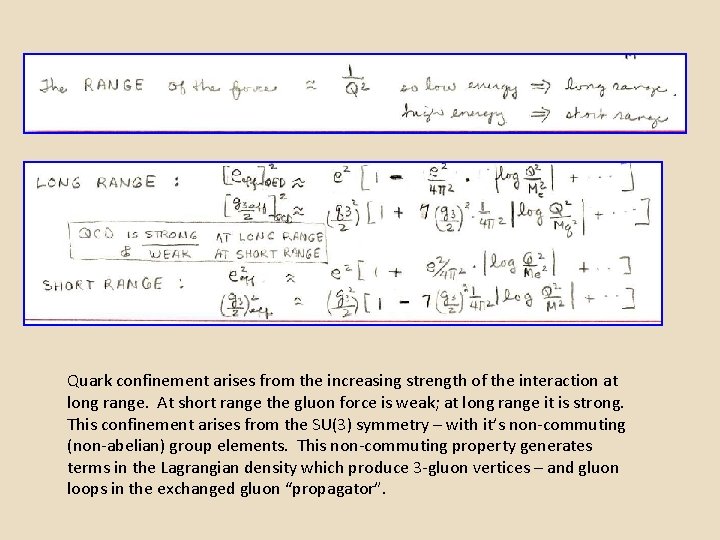 The RANGE of the force ≈ 1/Q² so low energy ⇒ long range.
high energy ⇒ short range
LONG RANGE : [e²eff]QED ≈ e² [1 - e²/4π² · |log Q²/Me²| + ···]
[g3eff/2]²QCD ≈ (g3/2)² [1 + 7 (g3/2)² · 1/4π² |log Q²/Mq²| + ···]
QCD IS STRONG AT LONG RANGE
& WEAK AT SHORT RANGE
SHORT RANGE : e²eff ≈ e² [1 + e²/4π² · |log Q²/Me²| + ···]
(g3/2)²eff ≈ (g3/2)² [1 - 7 (g3/2)² 1/4π² |log Q²/M²| + ···]
Quark confinement arises from the increasing strength of the interaction at
long range. At short range the gluon force is weak; at long range it is strong.
This confinement arises from the SU(3) symmetry – with it's non-commuting
(non-abelian) group elements. This non-commuting property generates
terms in the Lagrangian density which produce 3-gluon vertices – and gluon
loops in the exchanged gluon "propagator".